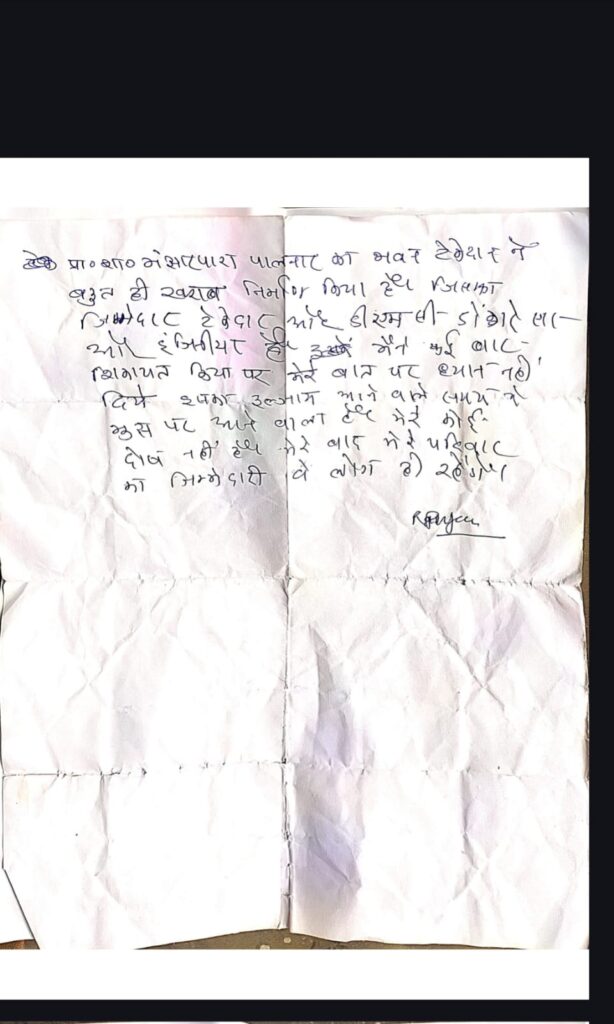 प्रा०शा० मंझारपारा पालनार का भवन ठेकेदार ने
बहुत ही खराब निर्माण किया है। जिसका
जिम्मेदार ठेकेदार और डीएमसी
और इंजिनीयर है मैंने कई बार
शिकायत किया पर मेरे बात पर ध्यान नहीं
दिये इल्जाम आने वाले समय में
मुझ पर आने वाला है। मेरे कोई
दोष नहीं है। मेरे बाद मेरे परिवार
का जिम्मेदारी वे लोग ही रहेंगे।